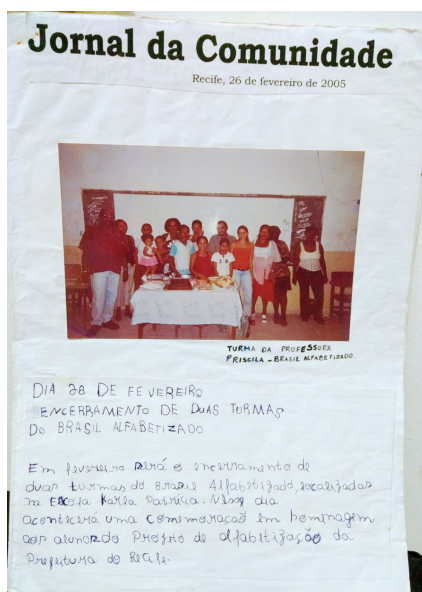 Jornal da Comunidade
Recife, 26 de fevereiro de 2005
TURMA DA PROFESSORA
PRISCILA - BRASIL ALFABETIZADO
DIA 28 DE FEVEREIRO
ENCERRAMENTO DE DUAS TURMAS
DO BRASIL ALFABETIZADO
Em fevereiro será o encerramento de
duas turmas do Brasil Alfabetizado, localizadas
na Escola Karla Patrícia. Nesse dia
acontecerá uma comemoração em homenagem
aos alunos do Projeto de alfabetização da
Prefeitura do Recife.